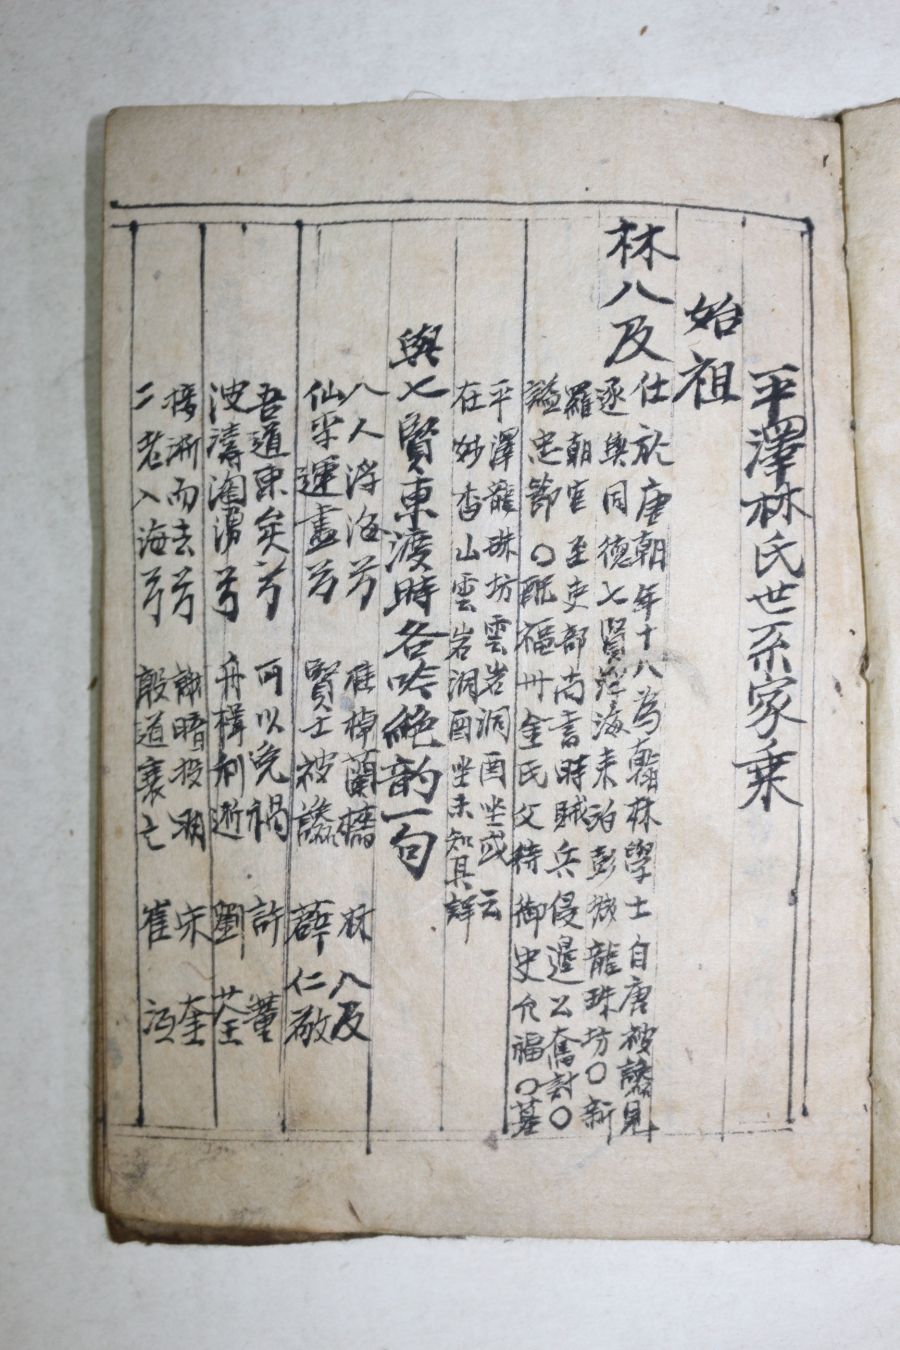 平澤林氏世系家乗
始祖
林八及
仕於唐朝年十八為翰林學士自唐被讒見
逐與同德七賢浮海来泊彭城龍珠坊〇新
羅朝官至吏部尚書時賊兵侵邊公奮討〇
謚忠節〇配福州金氏父侍御史允福〇墓
平澤龍珠坊雲岩洞酉坐或云
在妙香山雲岩洞酉坐未知具詳
與七賢東渡時各吟絶韵一句
八人浮海兮 桂棹蘭檣 林八及
仙乎運盡兮 賢士被讒 薛仁敬
吾道東矣兮 可以免禍 許董
波濤洶湧兮 舟楫利逝 劉荃
接淅而去兮 誰暗投明 宋奎
二老入海兮 殷道衰亡 崔冱